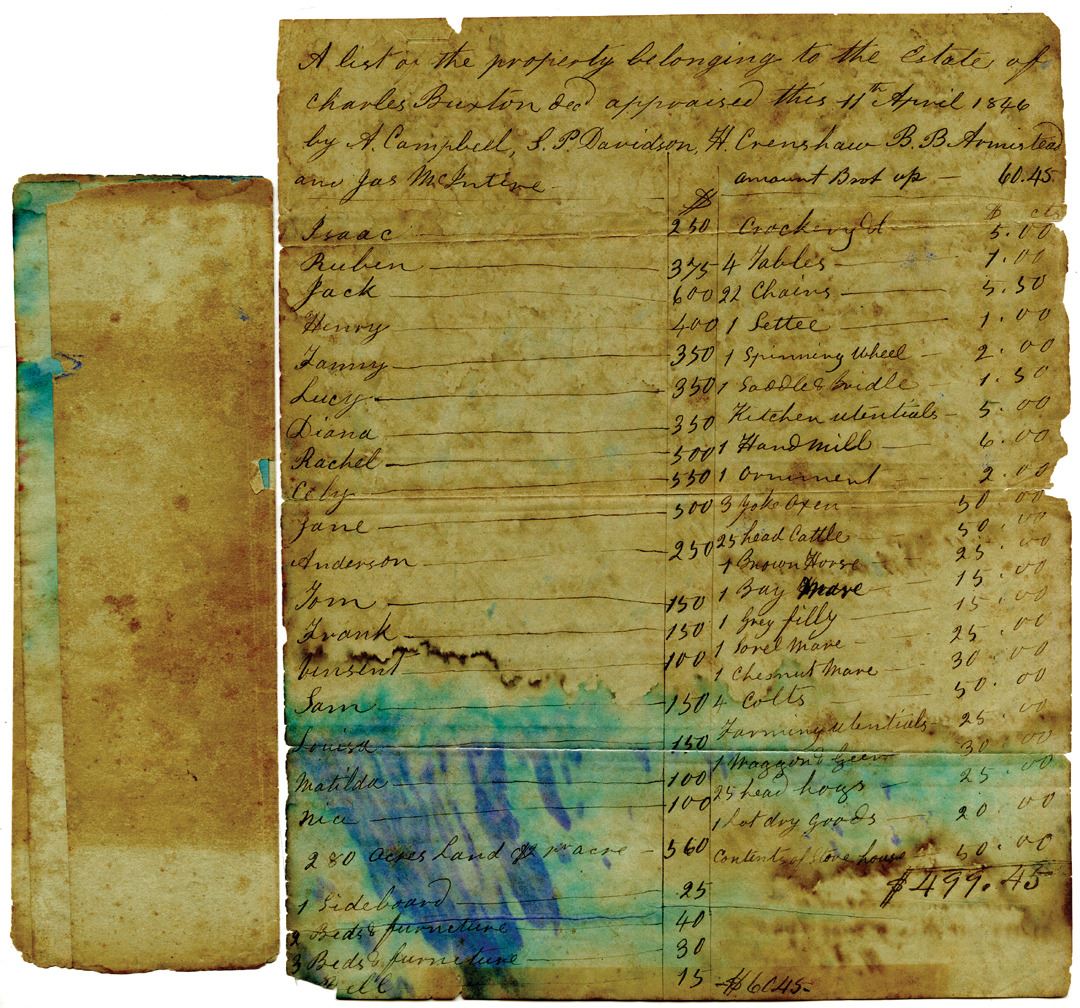 A list of the property belonging to the Estate of
Charles Buxton decd appraised this 11th April 1846
by A. Campbell, S. P. Davidson, H. Crenshaw B. B Armistead
and Jas McIntire
$
Isaac 250
Ruben 375
Jack 600
Henry 400
Fanny 350
Lucy 350
Diana 350
Rachel 500
Cely 550
Jane 500
Anderson 250
Tom 150
Frank 150
Vinsent 100
Sam 150
Louisa 150
Matilda 100
100
280 acres land $2 pr acre 560
1 Sideboard 25
2 Beds & furniture 40
3 Beds & furniture 30
15 $6045
amount Brot up 60.45
$ cts
Crockery 5.00
4 Tables 1.00
22 Chairs 5.50
1 Settee 1.00
1 Spinning Wheel 2.00
1 Saddle & bridle 1.50
Kitchen utentials 5.00
1 Hand mill 6.00
1 Orniment 2.00
3 yoke Oxen 50.00
25 head Cattle 50.00
1 Brown Horse 25.00
1 Bay Mare 15.00
1 Grey filly 15.00
1 Sorel Mare 25.00
1 Chesnut Mare 30.00
4 Colts 50.00
Farming utentials 25.00
1 Waggon & Geer 30.00
25 head hogs 25.00
1 Lot dry goods 20.00
Contents of Store house 50.00
$499.45